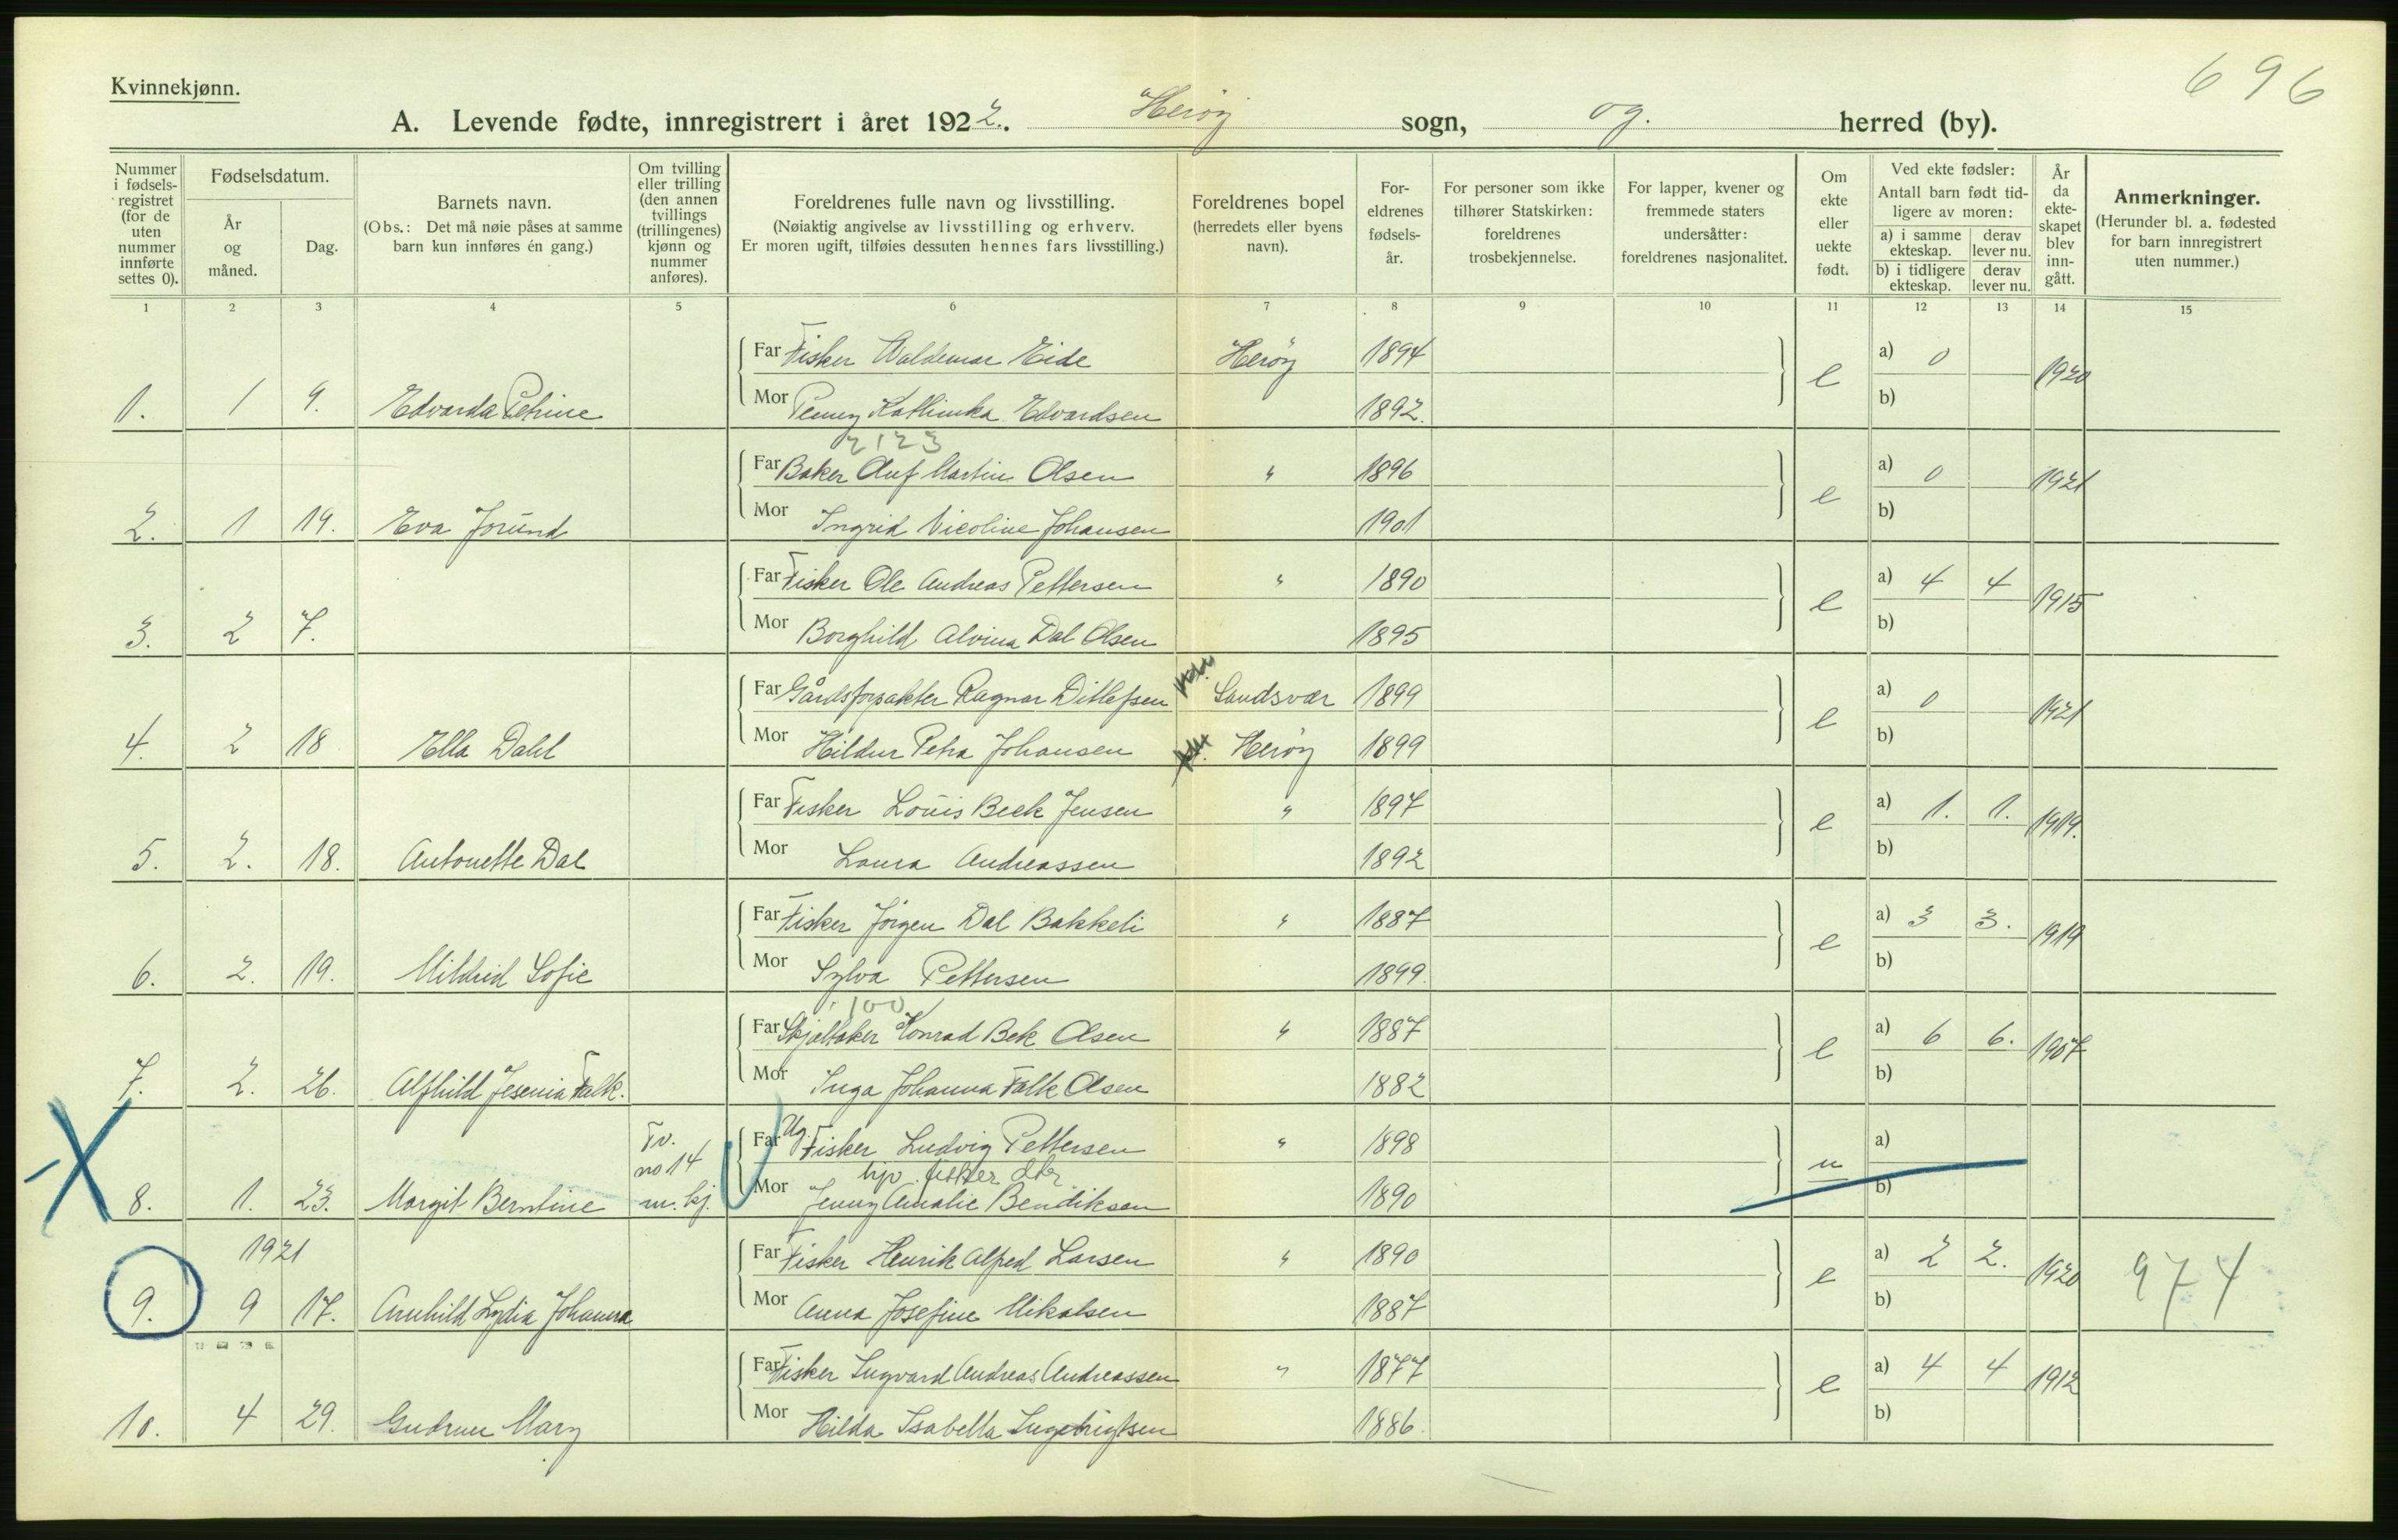 696
Kvinnekjønn.
A. Levende fødte, innregistrert i året 1922. Herøy sogn, og. herred (by).
Nummer i fødsels-registret (for de uten nummer innførte settes 0).
Fødselsdatum.
År og måned.
Dag.
Barnets navn.
(Obs.: Det må nøie påses at samme barn kun innføres én gang.)
Om tvilling eller trilling (den annen tvillings (trillingenes) kjønn og nummer anføres).
Foreldrenes fulle navn og livsstilling.
(Nøiaktig angivelse av livsstilling og erhverv.
Er moren ugift, tilføies dessuten hennes fars livsstilling.)
Foreldrenes bopel
(herredets eller byens navn).
For-eldrenes fødsels-år.
For personer som ikke tilhører Statskirken: foreldrenes trosbekjennelse.
For lapper, kvener og fremmede staters undersåtter: foreldrenes nasjonalitet.
Om ekte eller uekte født.
Ved ekte fødsler:
Antall barn født tid-ligere av moren:
a) i samme ekteskap.
derav lever nu.
b) i tidligere ekteskap.
derav lever nu.
År da ekte-skapet blev inn-gått.
Anmerkninger.
(Herunder bl. a. fødested for barn innregistrert uten nummer.)
1 2 3 4 5 6 7 8 9 10 11 12 13 14 15
Far Fisker Waldemar Eide Herøy 1894 a) 0
1. 1 9. Edvarda Petrine e 1920
Mor Penny Kathinka Edvardsen 1892. b)
2123
Far Baker Auf Martin Olsen " 1896 a) 0
2. 1 19. Eva Jorund e 1921
Mor Ingrid Nicoline Johansen 1901 b)
Far Fisker Ole Andreas Pettersen " 1890 a) 4 4
3. 2 7. e 1915
Mor Borghild Alvina Dal Olsen 1895 b)
Far Gårdsforpakter Ragnar Ditlefsen Sandsvær 1899 a) 0
4. 2 18 Ella Dahl e 1921
Mor Hildur Petra Johansen Herøy 1899 b)
Far Fisker Louis Beck Jensen " 1897 a) 1. 1.
5. 2. 18. Antonette Dal e 1919.
Mor Laura Andreassen 1892 b)
Far Fisker Jørgen Dal Bakkeli " 1887 a) 3 3.
6. 2. 19. Mildrid Sofie e 1919
Mor Sylva Pettersen 1899. b)
100
Far Skjøltaker Konrad Bek Olsen " 1887 a) 6 6.
7. 2. 26. Alfhild Jesenia Falk. e 1907
Mor Inga Johanna Falk Olsen 1882 b)
Tv. no 14 m. kj.
Far Ug. Fisker Ludvig Pettersen " 1898 a)
hjp. fisker dtr
8. 1. 23. Margit Berntine u
Mor Jenny Amalie Bendiksen 1890 b)
1921
Far Fisker Henrik Alfred Larsen " 1890 a) 2 2.
9. 9 17. Arnhild Lydia Johanna e 1920 974
Mor Anna Josefine Mikalsen 1887 b)
Far Fisker Ingvard Andreas Andreassen " 1877 a) 4 4
10. 4 29. Gudrun Mary e 1912
Mor Hilda Isabella Ingebrigtsen 1886. b)